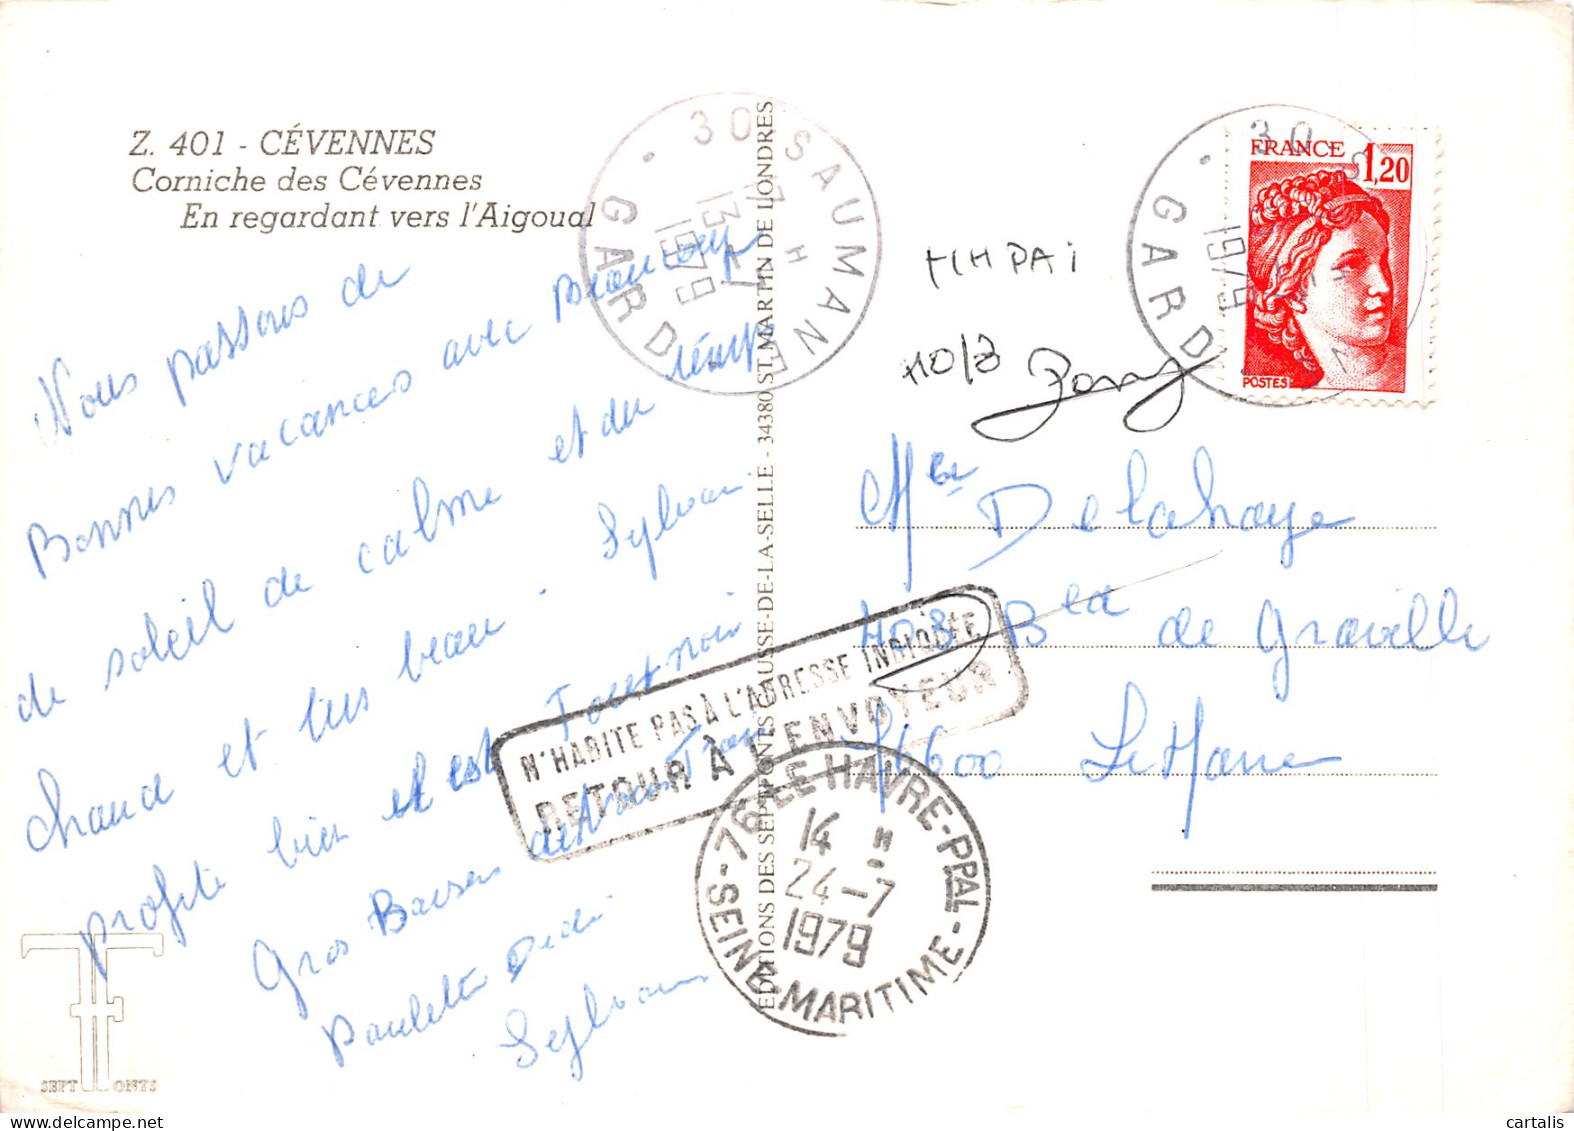 Z. 401 - CÉVENNES
Corniche des Cévennes
En regardant vers l'Aigoual
Nous passons de
Bonnes vacances avec Beaucoup
de soleil de calme et du temps
chaud et très beau. Sylvain
profite bien et est Tout noir
Gros Baisers de Nous Trois
Paulette Dédé
Sylvain
SEPT FONTS
EDITIONS DES SEPT FONTS CAUSSE-DE-LA-SELLE - 34380 ST MARTIN DE LONDRES
30 SAUMANE
17 H
13-7
1979
GARD
30 S
1979
GARD
FRANCE 1,20
POSTES
Mme Delahaye
403 Bd de Graville
76600 Le Havre
N'HABITE PAS À L'ADRESSE INDIQUÉE
RETOUR À L'ENVOYEUR
76 LE HAVRE-PPAL
14 H
24-7
1979
SEINE-MARITIME
cartalis